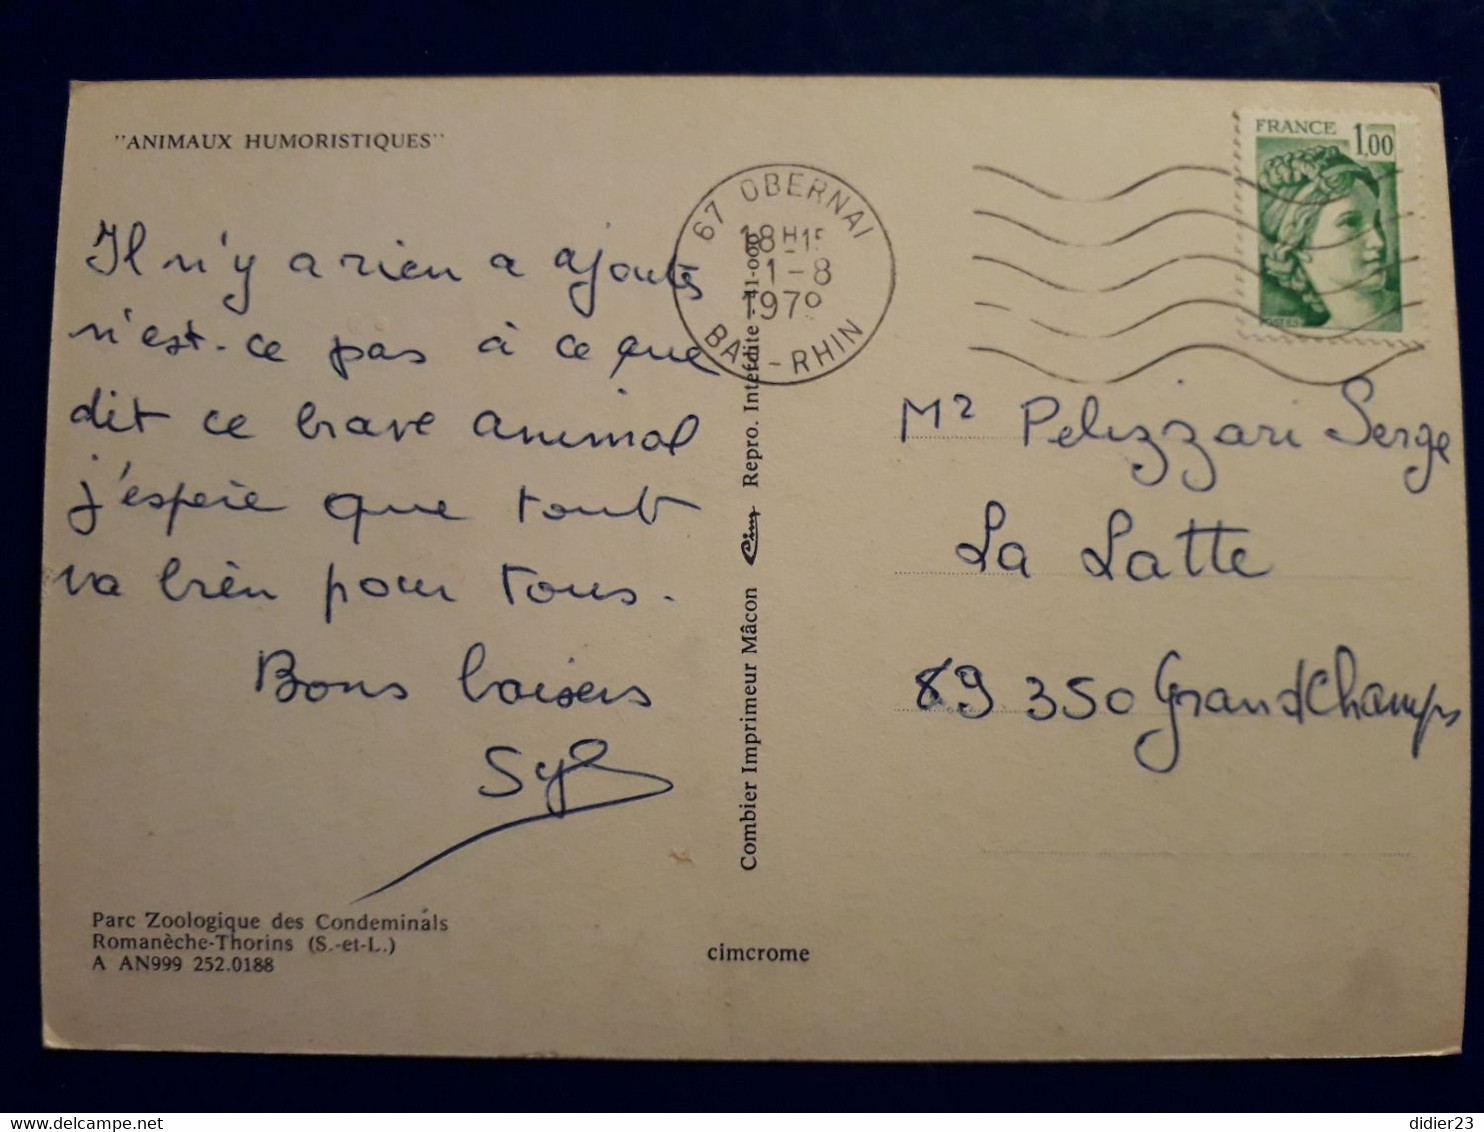 "ANIMAUX HUMORISTIQUES"
Il n'y a rien a ajouter
n'est-ce pas à ce que
dit ce brave animal
j'espère que tout
va bien pour tous.
Bons baisers
Syl
Parc Zoologique des Condeminals
Romanèche-Thorins (S.-et-L.)
A AN999 252.0188
67 OBERNAI
18H15
1-8
1979
BAS-RHIN
Combier Imprimeur Mâcon Cim Repro. Interdite - 41-000
cimcrome
FRANCE 1,00
Mr Pelizzari Serge
La Latte
89 350 GrandChamps
didier23